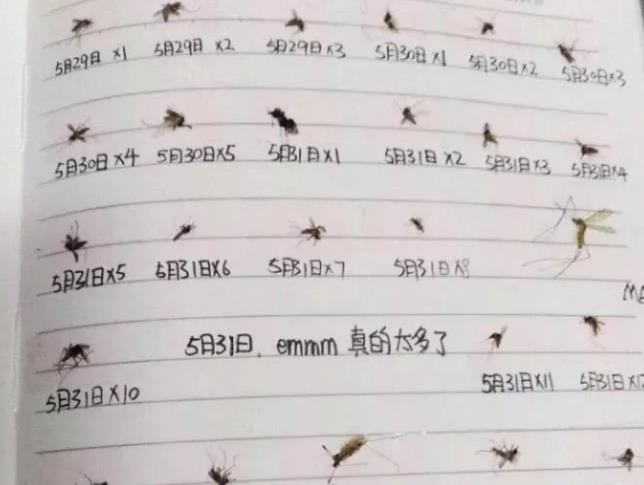 5月29日 x1 5月29日 x2 5月29日x3 5月30日x1 5月30日x2 5月30日x3
5月30日x4 5月30日x5 5月31日x1 5月31日 x2 5月31日x3 5月31日x4
5月31日x5 5月31日x6 5月31日x7 5月31日x8
5月31日, emmm 真的太多了
5月31日x10 5月31日x11 5月31日x12